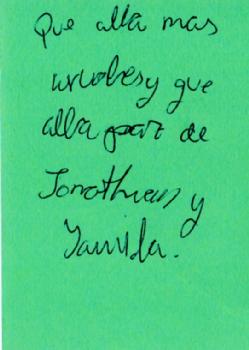 Que alla mas
arvolesy que
alla paz de
Jonathan y
Yamila.